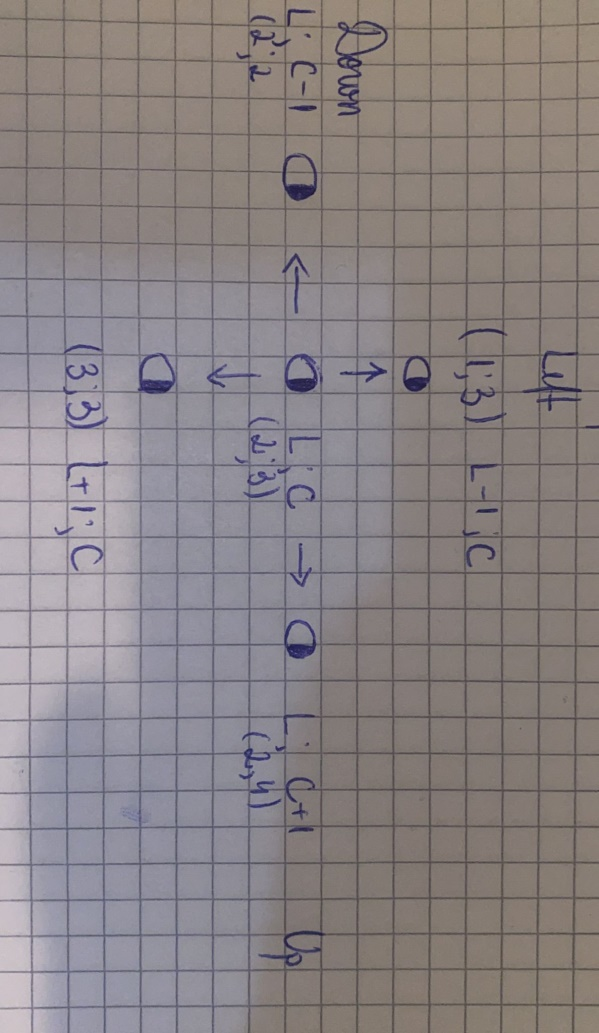 Left
(1;3) L-1;C
Down
L; C-1
(2;2
L; C
(2;3)
L; C+1
(2,4)
Up
(3;3) L+1;C